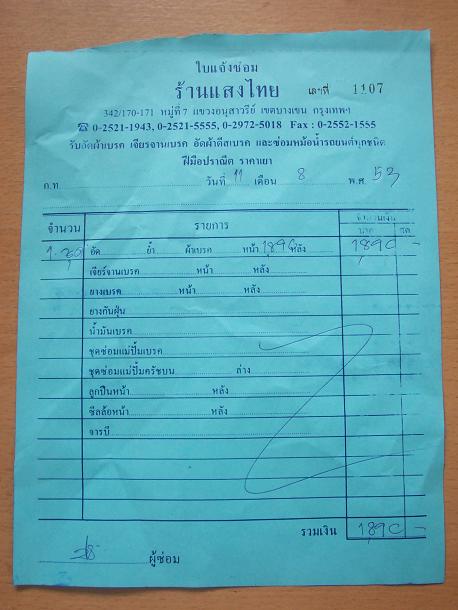 ใบแจ้งซ่อม
ร้านแสงไทย เลขที่ 1107
342/170-171 หมู่ที่ 7 แขวงอนุสาวรีย์ เขตบางเขน กรุงเทพฯ
☎ 0-2521-1943, 0-2521-5555, 0-2972-5018 Fax : 0-2552-1555
รับอัดผ้าเบรค เจียรจานเบรค อัดผ้าดีสเบรค และซ่อมหม้อน้ำรถยนต์ทุกชนิด
ฝีมือปราณีต ราคาเยา
ก.ท. วันที่ 11 เดือน 8 พ.ศ. 53
จำนวน รายการ จำนวนเงิน
บาท สต.
อัด ย้ำ ผ้าเบรค หน้า 1,890 หลัง 1,890 -
เจียร์จานเบรค หน้า หลัง
ยางเบรค หน้า หลัง
ยางกันฝุ่น
น้ำมันเบรค
ชุดซ่อมแม่ปั๊มเบรค
ชุดซ่อมแม่ปั๊มครัชบน ล่าง
ลูกปืนหน้า หลัง
ซีลล้อหน้า หลัง
จารบี
รวมเงิน 1,890 -
ผู้ซ่อม